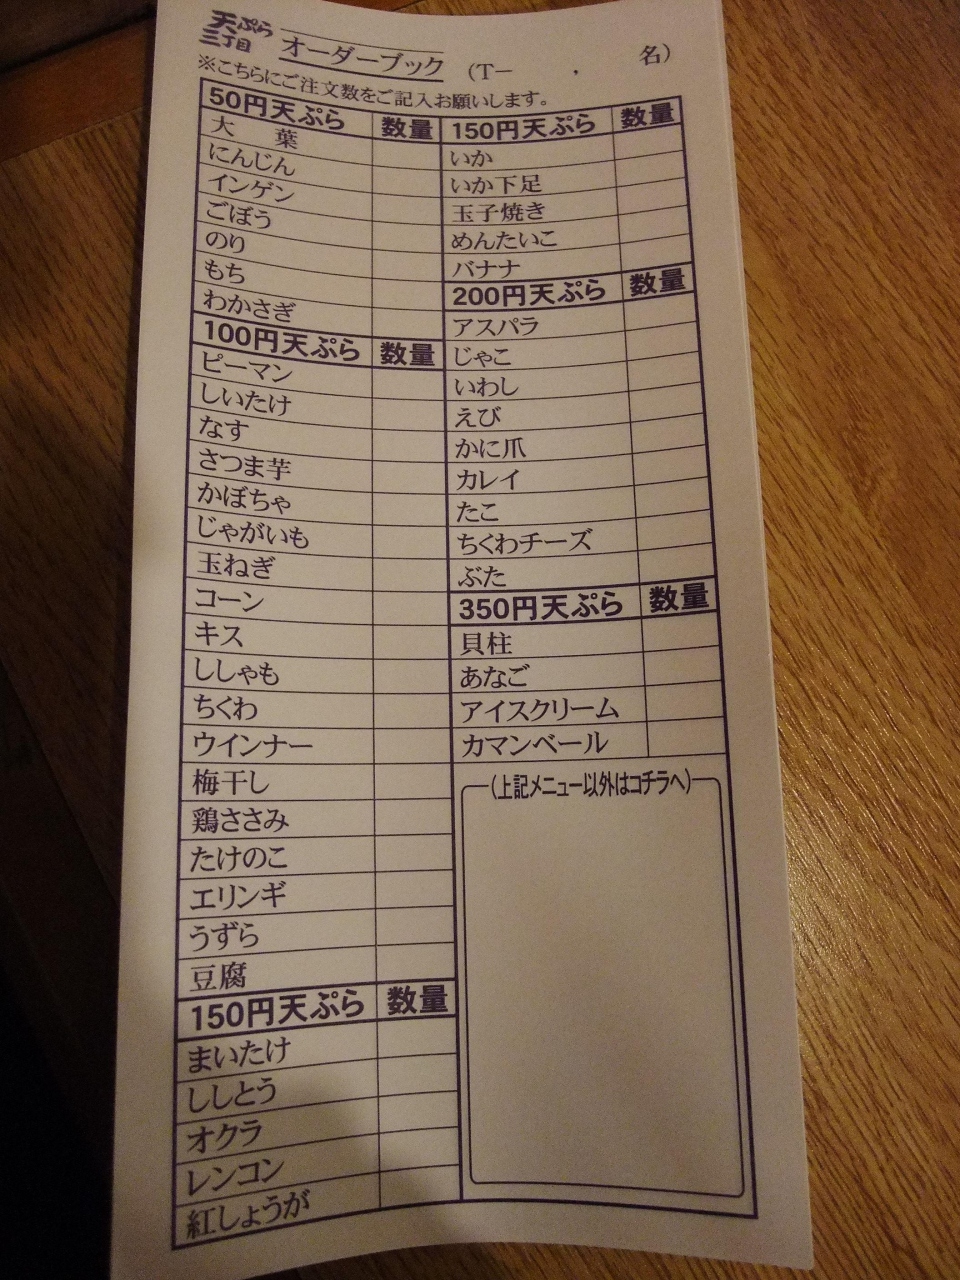 天ぷら
三丁目
オーダーブック (T－ , 名)
※こちらにご注文数をご記入お願いします。
50円天ぷら 数量
大 葉
にんじん
インゲン
ごぼう
のり
もち
わかさぎ
100円天ぷら 数量
ピーマン
しいたけ
なす
さつま芋
かぼちゃ
じゃがいも
玉ねぎ
コーン
キス
ししゃも
ちくわ
ウインナー
梅干し
鶏ささみ
たけのこ
エリンギ
うずら
豆腐
150円天ぷら 数量
まいたけ
ししとう
オクラ
レンコン
紅しょうが
150円天ぷら 数量
いか
いか下足
玉子焼き
めんたいこ
バナナ
200円天ぷら 数量
アスパラ
じゃこ
いわし
えび
かに爪
カレイ
たこ
ちくわチーズ
ぶた
350円天ぷら 数量
貝柱
あなご
アイスクリーム
カマンベール
(上記メニュー以外はコチラへ)